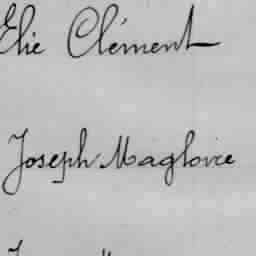 Elie Clément
Joseph Magloire